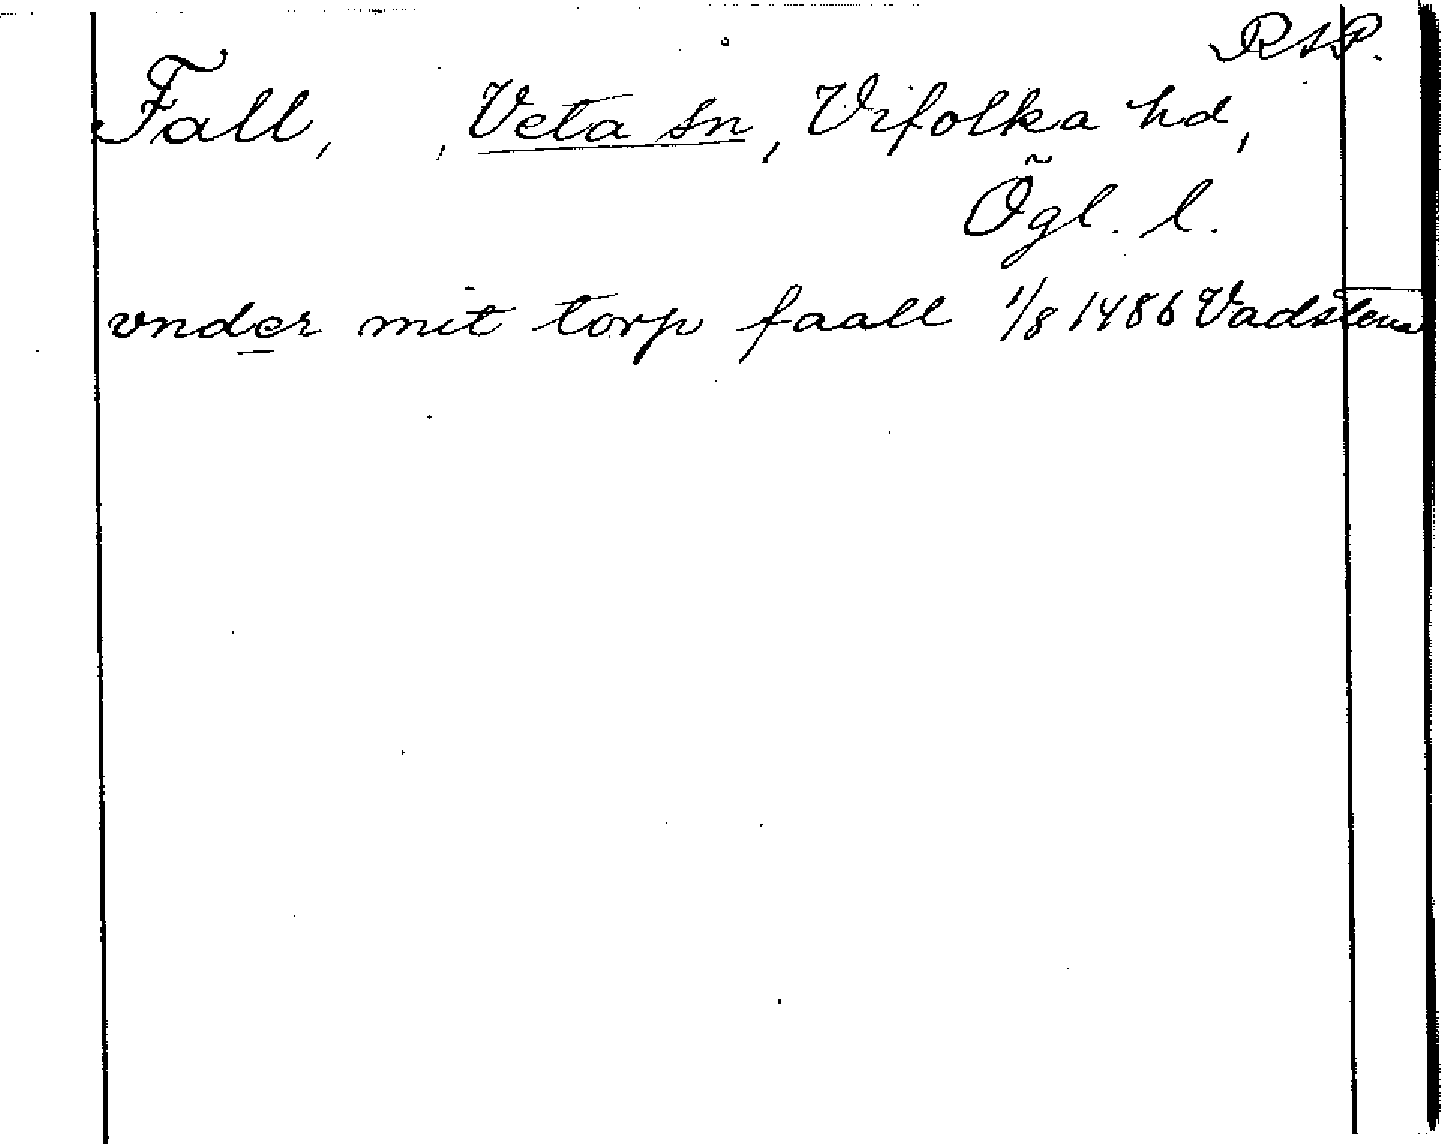 RAP.
Fall, , Veta sn, Vifolka hd,
Ögl. l.
vnder mit torp faall 1/8 1486 Vadstena